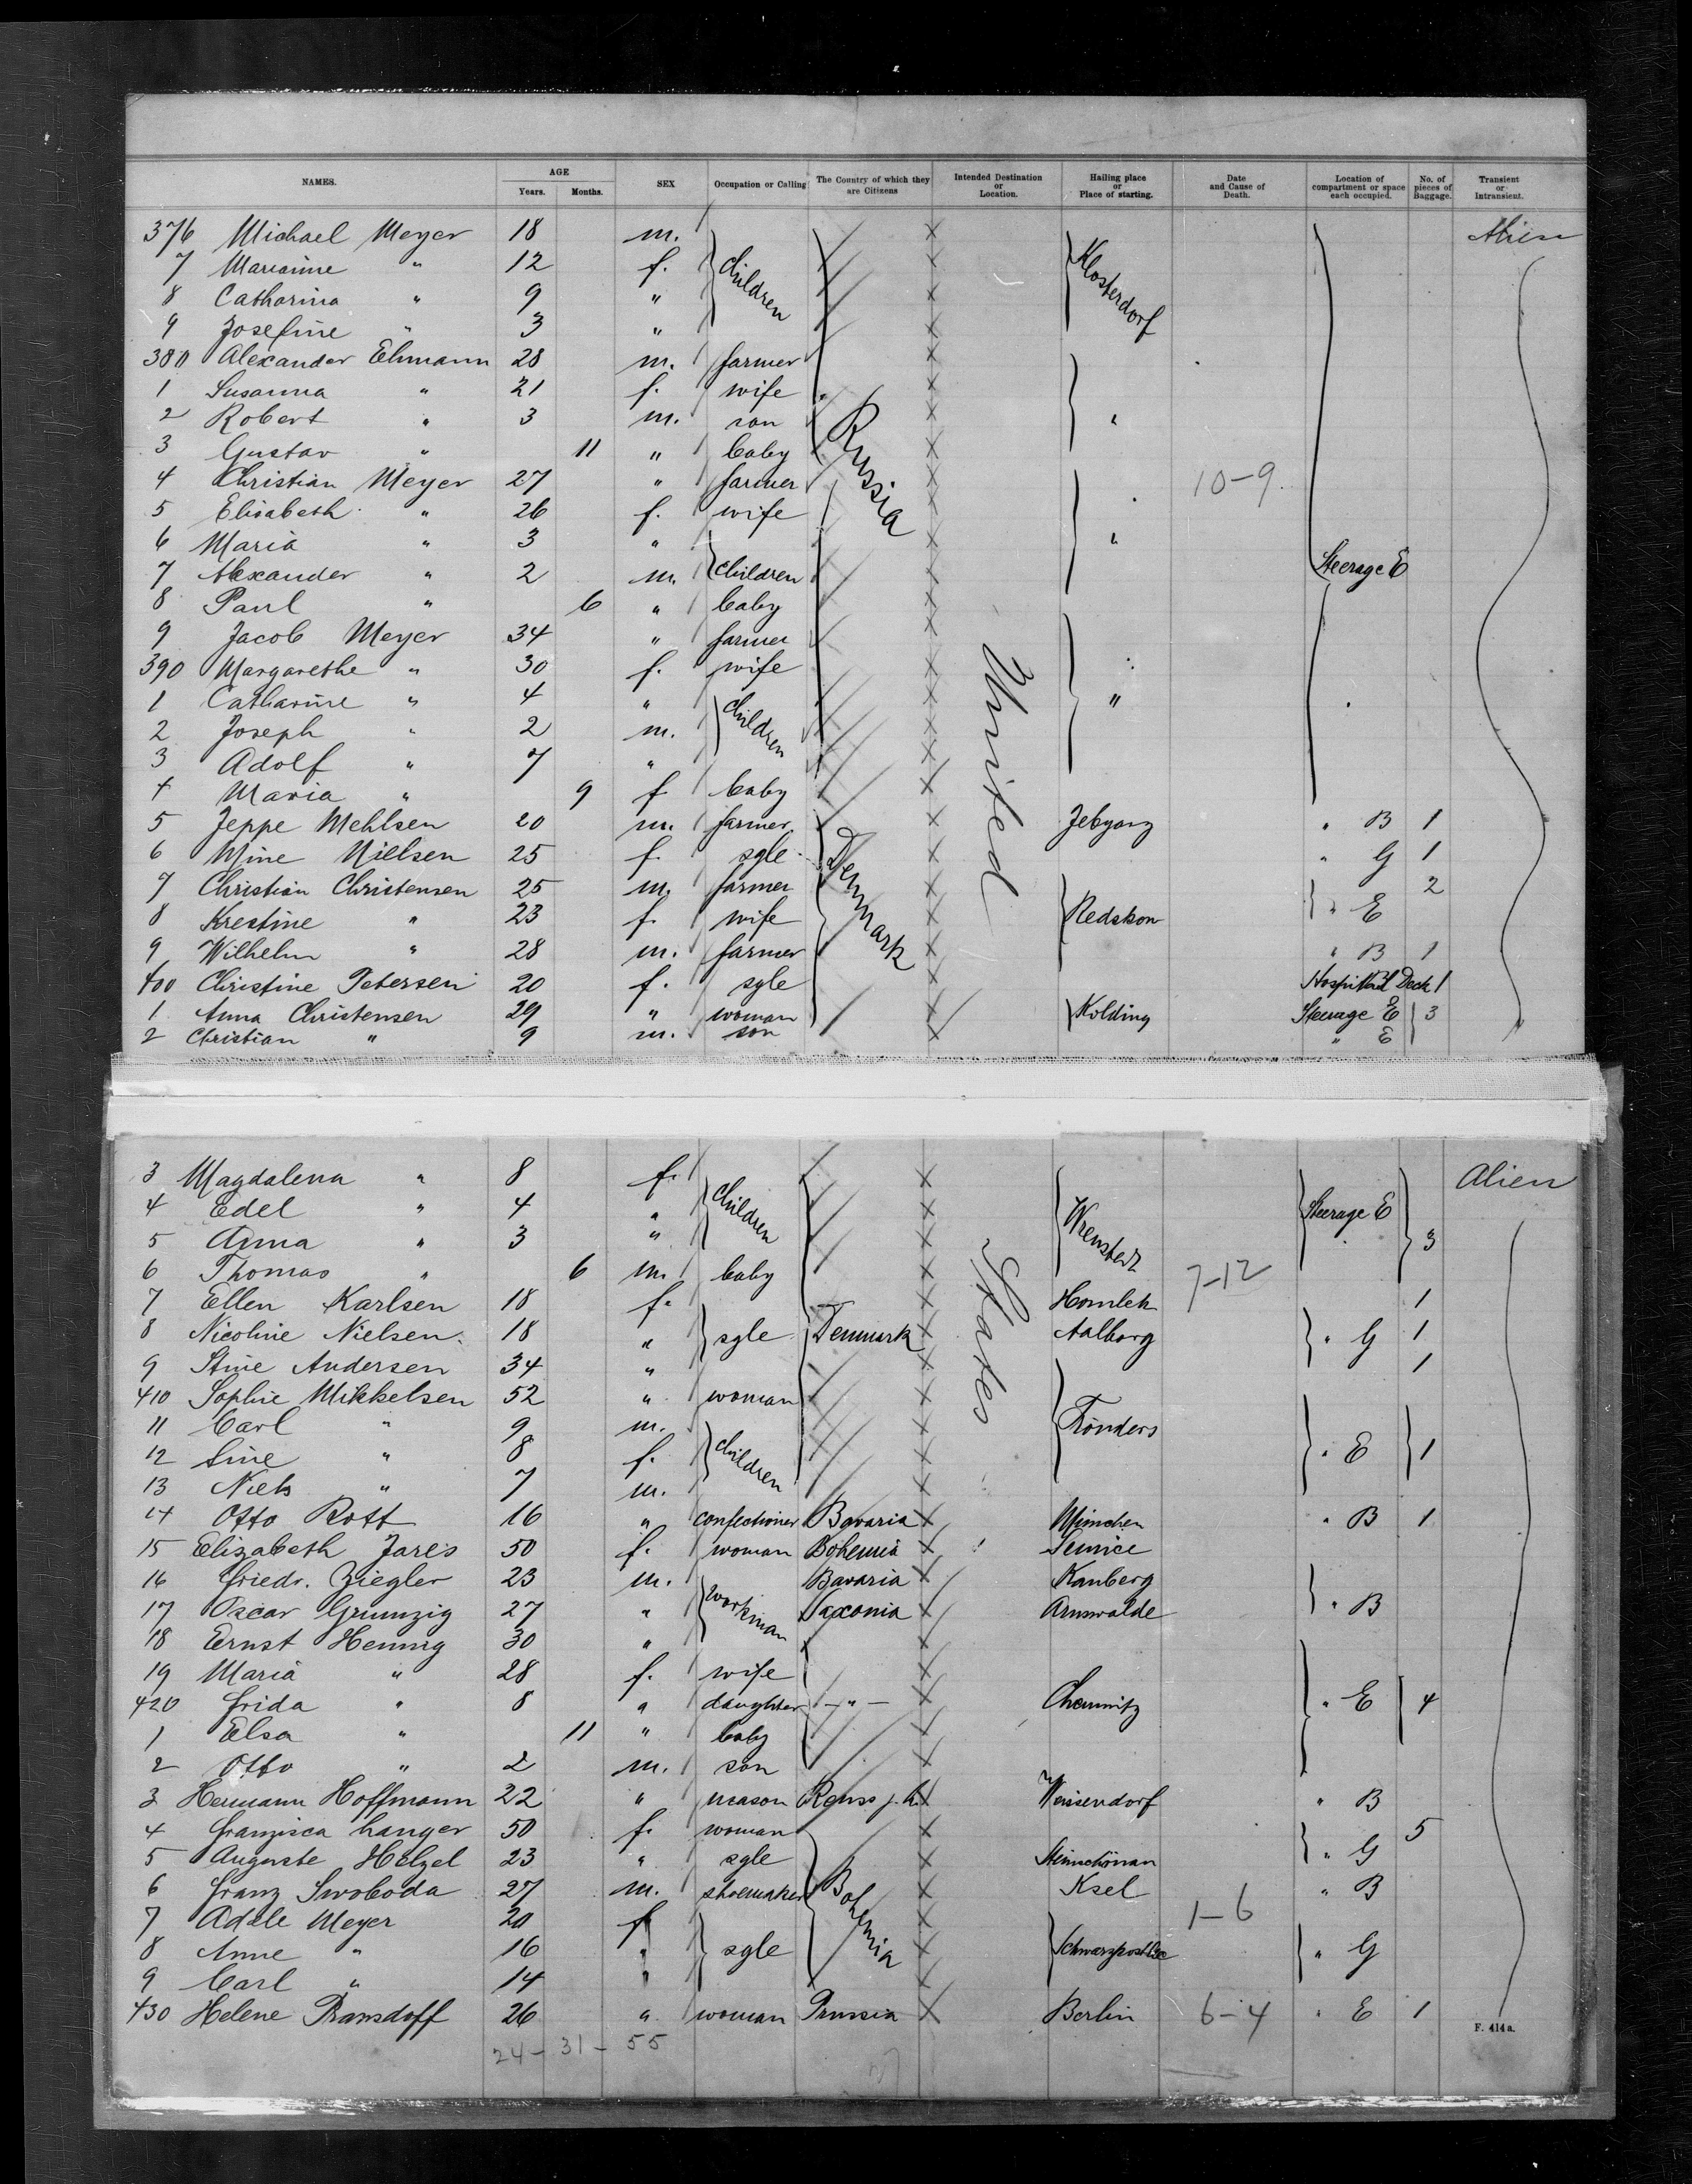 NAMES. AGE Years. Months. SEX Occupation or Calling The Country of which they are Citizens Intended Destination or Location. Hailing place or Place of starting. Date and Cause of Death. Location of compartment or space each occupied. No. of pieces of Baggage. Transient or Intransient.
376 Michael Meyer 18 m. Alien
7 Marianne " 12 f. children Klosterdorf
8 Catharina " 9 "
9 Josefine " 3 "
380 Alexander Ehmann 28 m. farmer
1 Susanna " 21 f. wife
2 Robert " 3 m. son Russia "
3 Gustav " 11 " baby
4 Christian Meyer 27 " farmer 10-9
5 Elisabeth " 26 f. wife
6 Maria " 3 " "
7 Alexander " 2 m. children Steerage E
8 Paul " 6 " baby
9 Jacob Meyer 34 " farmer
390 Margarethe " 30 f. wife United
1 Catharine " 4 " children "
2 Joseph " 2 m.
3 Adolf " 7 "
4 Maria " 9 f baby
5 Jeppe Mehlsen 20 m. farmer Jebyong " B 1
6 Mine Nielsen 25 f. sgle Denmark " G 1
7 Christian Christensen 25 m. farmer 2
8 Krestine " 23 f. wife Nedskon " E
9 Wilhelm " 28 m. farmer " B 1
400 Christine Petersen 20 f. sgle Hospital Deck 1
1 Anna Christensen 29 " woman Kolding Steerage E 3
2 Christian " 9 m. son " E
3 Magdalena " 8 f. Alien
4 Edel " 4 " children Steerage E
5 Anna " 3 " 3
6 Thomas " 6 m. baby 7-12
7 Ellen Karlsen 18 f. States 1
8 Nicoline Nielsen 18 " sgle Denmark Aalborg " G 1
9 Stine Andersen 34 " 1
410 Sophie Mikkelsen 52 " woman
11 Carl " 9 m. Tronders
12 Sine " 8 f. children " E 1
13 Niels " 7 m.
14 Otto Rott 16 " confectioner Bavaria München " B 1
15 Elizabeth Jares 50 f. woman Bohemia
16 Friedr. Ziegler 23 m. Bavaria Kanberg
17 Oscar Grunzig 27 " workman Saxonia Arnswalde " B
18 Ernst Hennig 30 "
19 Maria " 28 f. wife
420 Frida " 8 " daughter - " - Chemnitz " E 4
1 Elsa " 11 " baby
2 Otto " 2 m. son
3 Hermann Hoffmann 22 " mason Reuss j. L. Weissendorf " B
4 Franzisca Langer 50 f. woman 5
5 Auguste Helzel 23 " sgle Steinschönau " G
6 Franz Swoboda 27 m. shoemaker Bohemia Ksel " B
7 Adele Meyer 20 f 1-6
8 Anne " 16 " sgle " G
9 Carl " 14 "
430 Helene Pransdoff 26 " woman Prussia Berlin 6-4 " E 1
24 - 31 - 55
F. 414a.